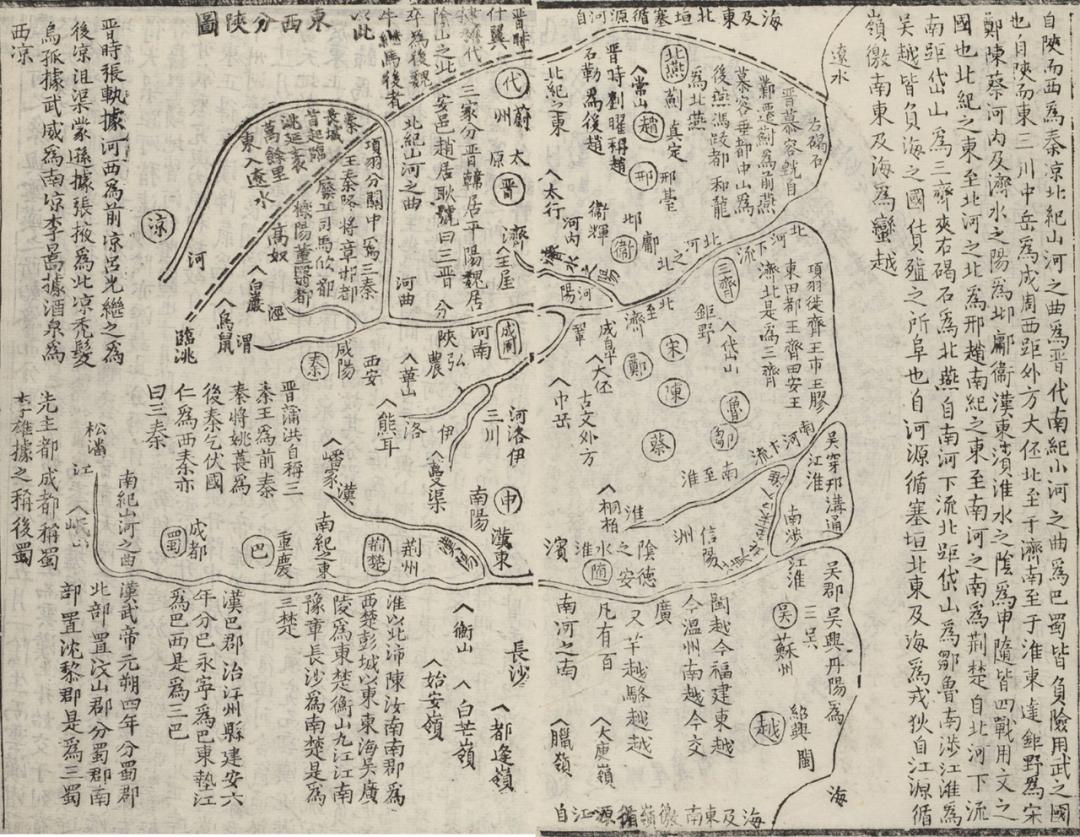 自陝而西為秦涼北紀山河之曲為晉代南紀小河之曲為巴蜀皆負險用武之國
也自陝而東三川中岳為成周西距外方大伾北至于濟南至于淮東達鉅野為宋
鄭陳蔡河內及濟水之陽為邶鄘衛漢東濱淮水之陰為申隨皆四戰用文之
國也北紀之東至北河之北為邢趙南紀之東至南河之南為荆楚自北河下流
南距岱山為三齊夾右碣石為北燕自南河下流北距岱山為鄒魯南涉江淮為
吳越皆負海之國貨殖之所阜也自河源循塞垣北東及海為戎狄自江源循
嶺徼南東及海為蠻越
海及東北垣塞循源河自
遼水
右碣石
晉慕容皝自
鄴遷薊為前燕
慕容垂都中山為
後燕馮跋都和龍
為北燕
北燕
薊
真定
常山
趙
邢
邢臺
晉時劉曜稱趙
石勒為後趙
北紀之東
太行
河內
衛輝
邶
鄘
衛
北河下流
北河之
河陽
項羽徙齊王市王膠
東田都王齊田安王
濟北是為三齊
三齊
鉅野
岱山
北至濟
宋
鄭
陳
魯
鄒
蔡
成皐
大伾
鞏
中岳
古文外方
南河下流
南至淮
吳穿邗溝通
江淮
南涉
江淮
桐柏
淮
信陽
州
淮水之陰
隨
德安
濱
吳郡吳興丹陽為
三吳
吳
蘇州
紹興
越
閩
海
閩越今福建東越
今溫州南越今交
廣
又羊越駱越越
凡有百
南河之南
大庾嶺
臘嶺
海及東南徼嶺循源江自
東西分陝圖
代
蔚
州
太
原
晉
濟
王屋
三家分晉韓居平陽魏居
安邑趙居耿號曰三晉
陰山之北
卒為後魏
牛繼馬後者
以此
北紀山河之曲
項羽分關中為三秦
王秦略將章邯都
廢丘司馬欣都
櫟陽董翳都
高奴
秦
長城
首起臨
洮延袤
萬餘里
東入遼水
涼
河
臨洮
白巖
涇
鳥鼠
渭
河曲
分陝
河南
成周
弘農
咸陽
秦
西安
華山
熊耳
洛
伊
三川
河洛伊
蠻渠
申
南陽
漢東
晉時張軌據河西為前涼呂光繼之為
後涼沮渠蒙遜據張掖為北涼禿髮
烏孤據武威為南涼李暠據酒泉為
西涼
晉蒲洪自稱三
秦王為前秦
秦將姚萇為
後秦乞伏國
仁為西秦亦
曰三秦
嶓冢
漢
南紀之東
荆楚
荆州
漢陽
重慶
巴
成都
蜀
南紀山河之西
松潘
江
岷山
先主都成都稱蜀
李雄據之稱後蜀
長沙
都逢嶺
白芒嶺
衡山
始安嶺
淮以北沛陳汝南南郡為
西楚彭城以東東海吳廣
陵為東楚衡山九江江南
豫章長沙為南楚是為
三楚
漢巴郡治江州縣建安六
年分巴永寧為巴東墊江
為巴西是為三巴
漢武帝元朔四年分蜀郡
北部置汶山郡分蜀郡南
部置沈黎郡是為三蜀